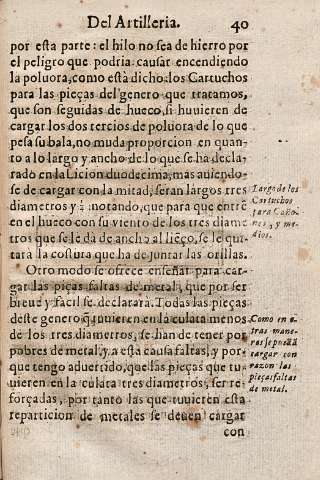 Del Artilleria. 40
por esta parte: el hilo no sea de hierro por
el peligro que podria causar encendiendo
la poluora, como està dicho: los Cartuchos
para las pieças del genero que tratamos,
que son seguidas de hueco, si huuieren de
cargar los dos tercios de poluora de lo que
pesa su bala, no muda proporcion en quan-
to a lo largo y ancho de lo que se ha decla,
rado en la Licion duodecima, mas auiendo-
se de cargar con la mitad, seran largos tres
diametros y notando, que para que entrẽ
en el hueco con su viento de los tres diame
tros que se le dá de ancho al liẽço, se le qui-
tara la costura que ha de juntar las orillas.
Otro modo se ofrece enseñar para car-
gar las pieças faltas de metal, que por ser
breue y facil se declarará. Todas las pieças
deste genero q̃ tuuieren en la culata menos
de los tres diametros, se han de tener por
pobres de metal, y a esta causa faltas, y por-
que tengo aduertido, que las pieças que tu-
uieren en la culata tres diametros, ser re-
forçadas, por tanto las que tuuieren esta
reparticion de metales se deuen cargar
con
Largo de los
Cartuchos
para Caño-
nes, y me-
dios.
Como en o-
tras mane-
ras se podrá
cargar con
razon las
pieças faltas
de metal.